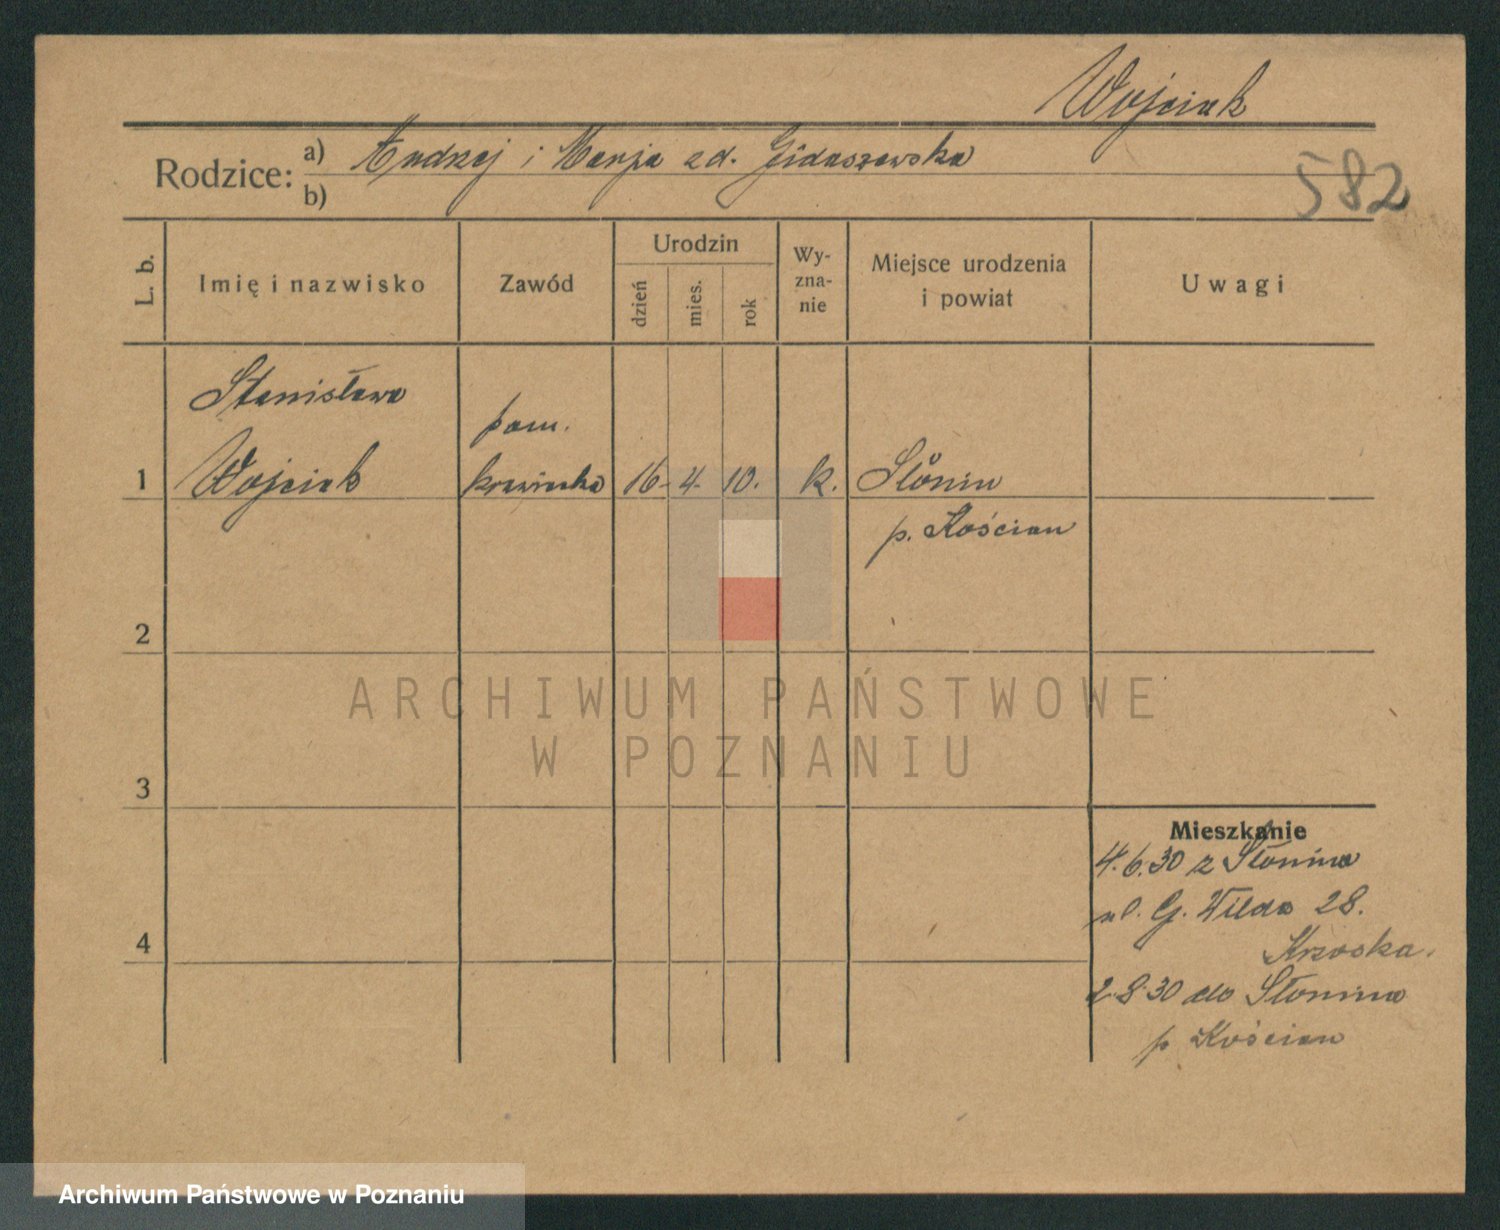 Wojciak
Rodzice: a) Andrzej i Marja zd. Gidaszewska
b)
582
L. b.
Imię i nazwisko
Zawód
Urodzin
dzień
mies.
rok
Wy-
zna-
nie
Miejsce urodzenia
i powiat
Uwagi
Stanisława
pom.
1 Wojciak krawiecka 16. 4. 10. k. Słonin
p. Kościan
2
ARCHIWUM PAŃSTWOWE
W POZNANIU
3
Mieszkanie
4.6.30 z Słonina
ul. G. Wilda 28.
4
Krzoska.
2.8.30 do Słonina
p Kościan
Archiwum Państwowe w Poznaniu